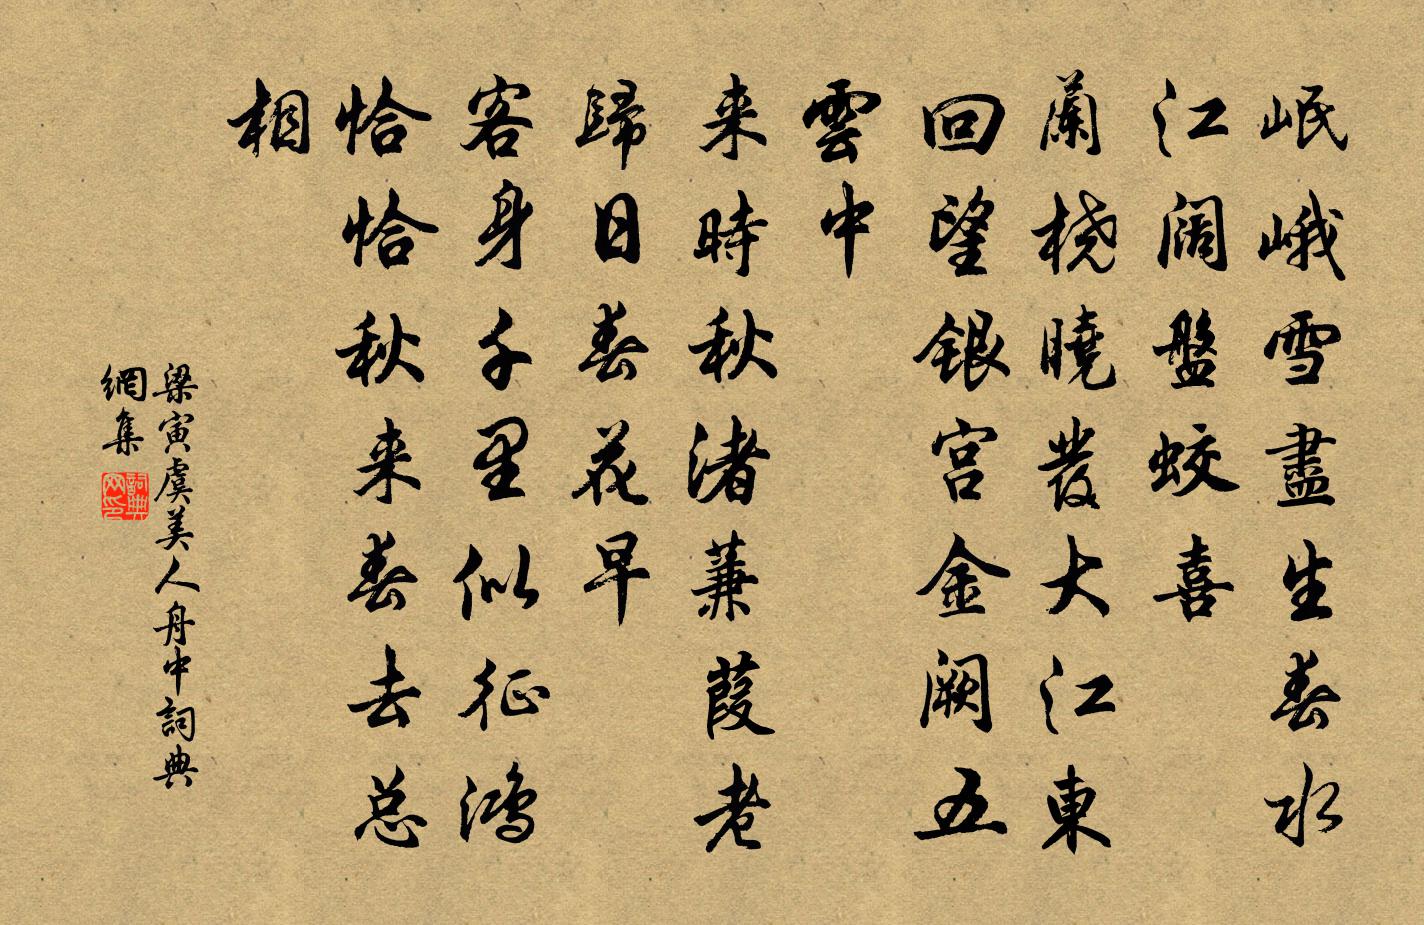 岷峨雪盡生春水
江闊盤蛟喜
蘭橈曉發大江東
回望銀宫金闕五
雲中
来時秋渚蒹葭老
歸日春花早
客身千里似征鴻
恰恰秋来春去总
相
梁寅虞美人舟中詞典
網集
詞典
网印